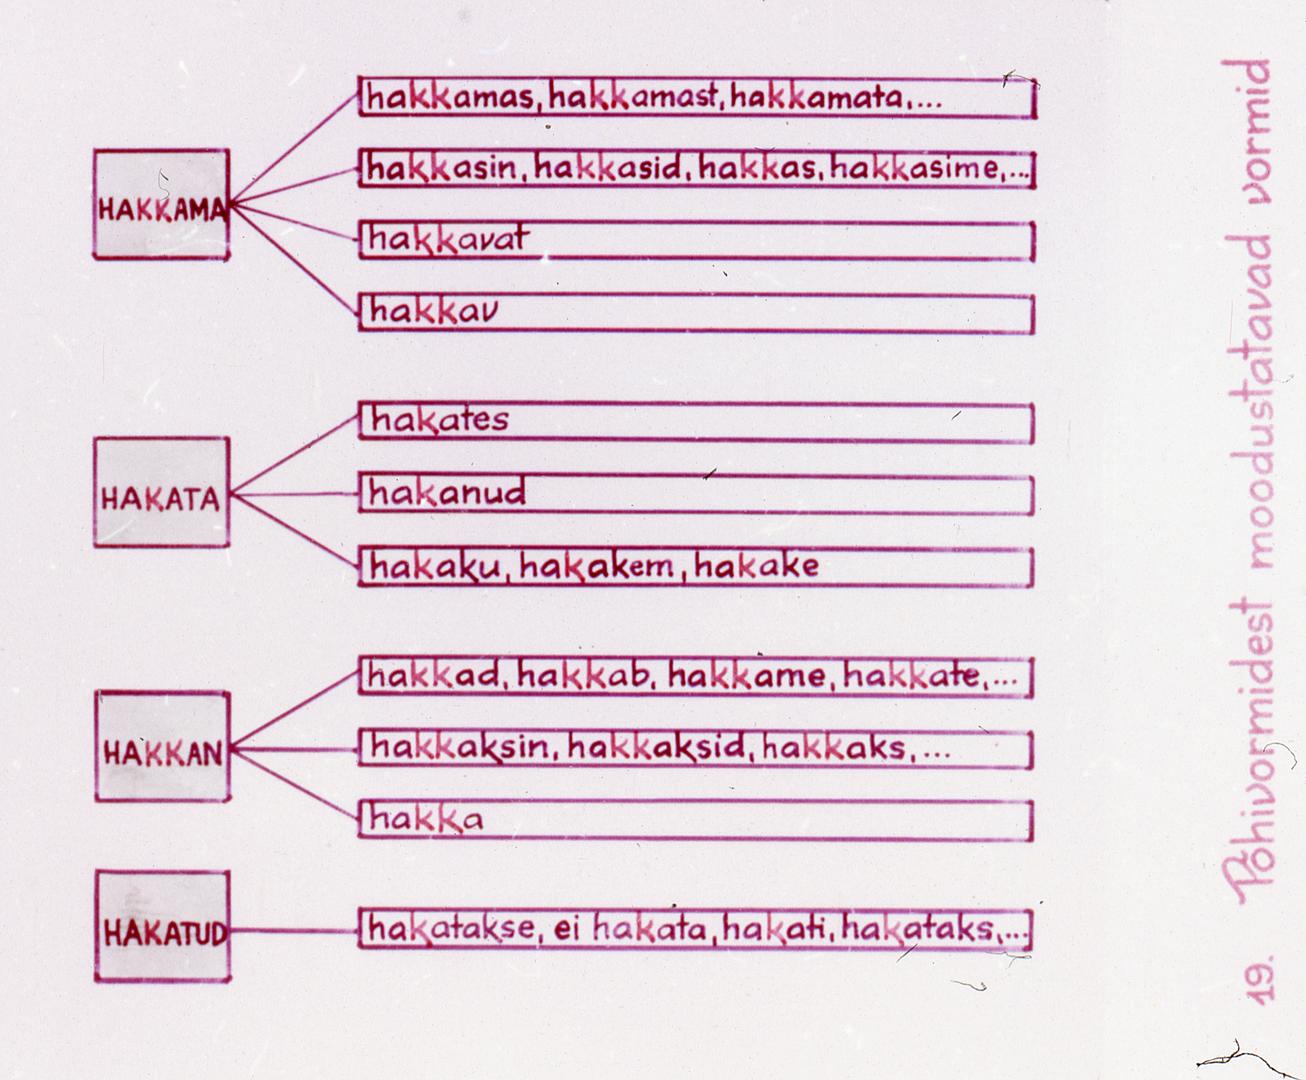 19. Põhivormidest moodustatavad vormid
HAKKAMA
hakkamas, hakkamast, hakkamata, ...
hakkasin, hakkasid, hakkas, hakkasime, ...
hakkavat
hakkav
HAKATA
hakates
hakanud
hakaku, hakakem, hakake
HAKKAN
hakkad, hakkab, hakkame, hakkate, ...
hakkaksin, hakkaksid, hakkaks, ...
hakka
HAKATUD
hakatakse, ei hakata, hakati, hakataks, ...